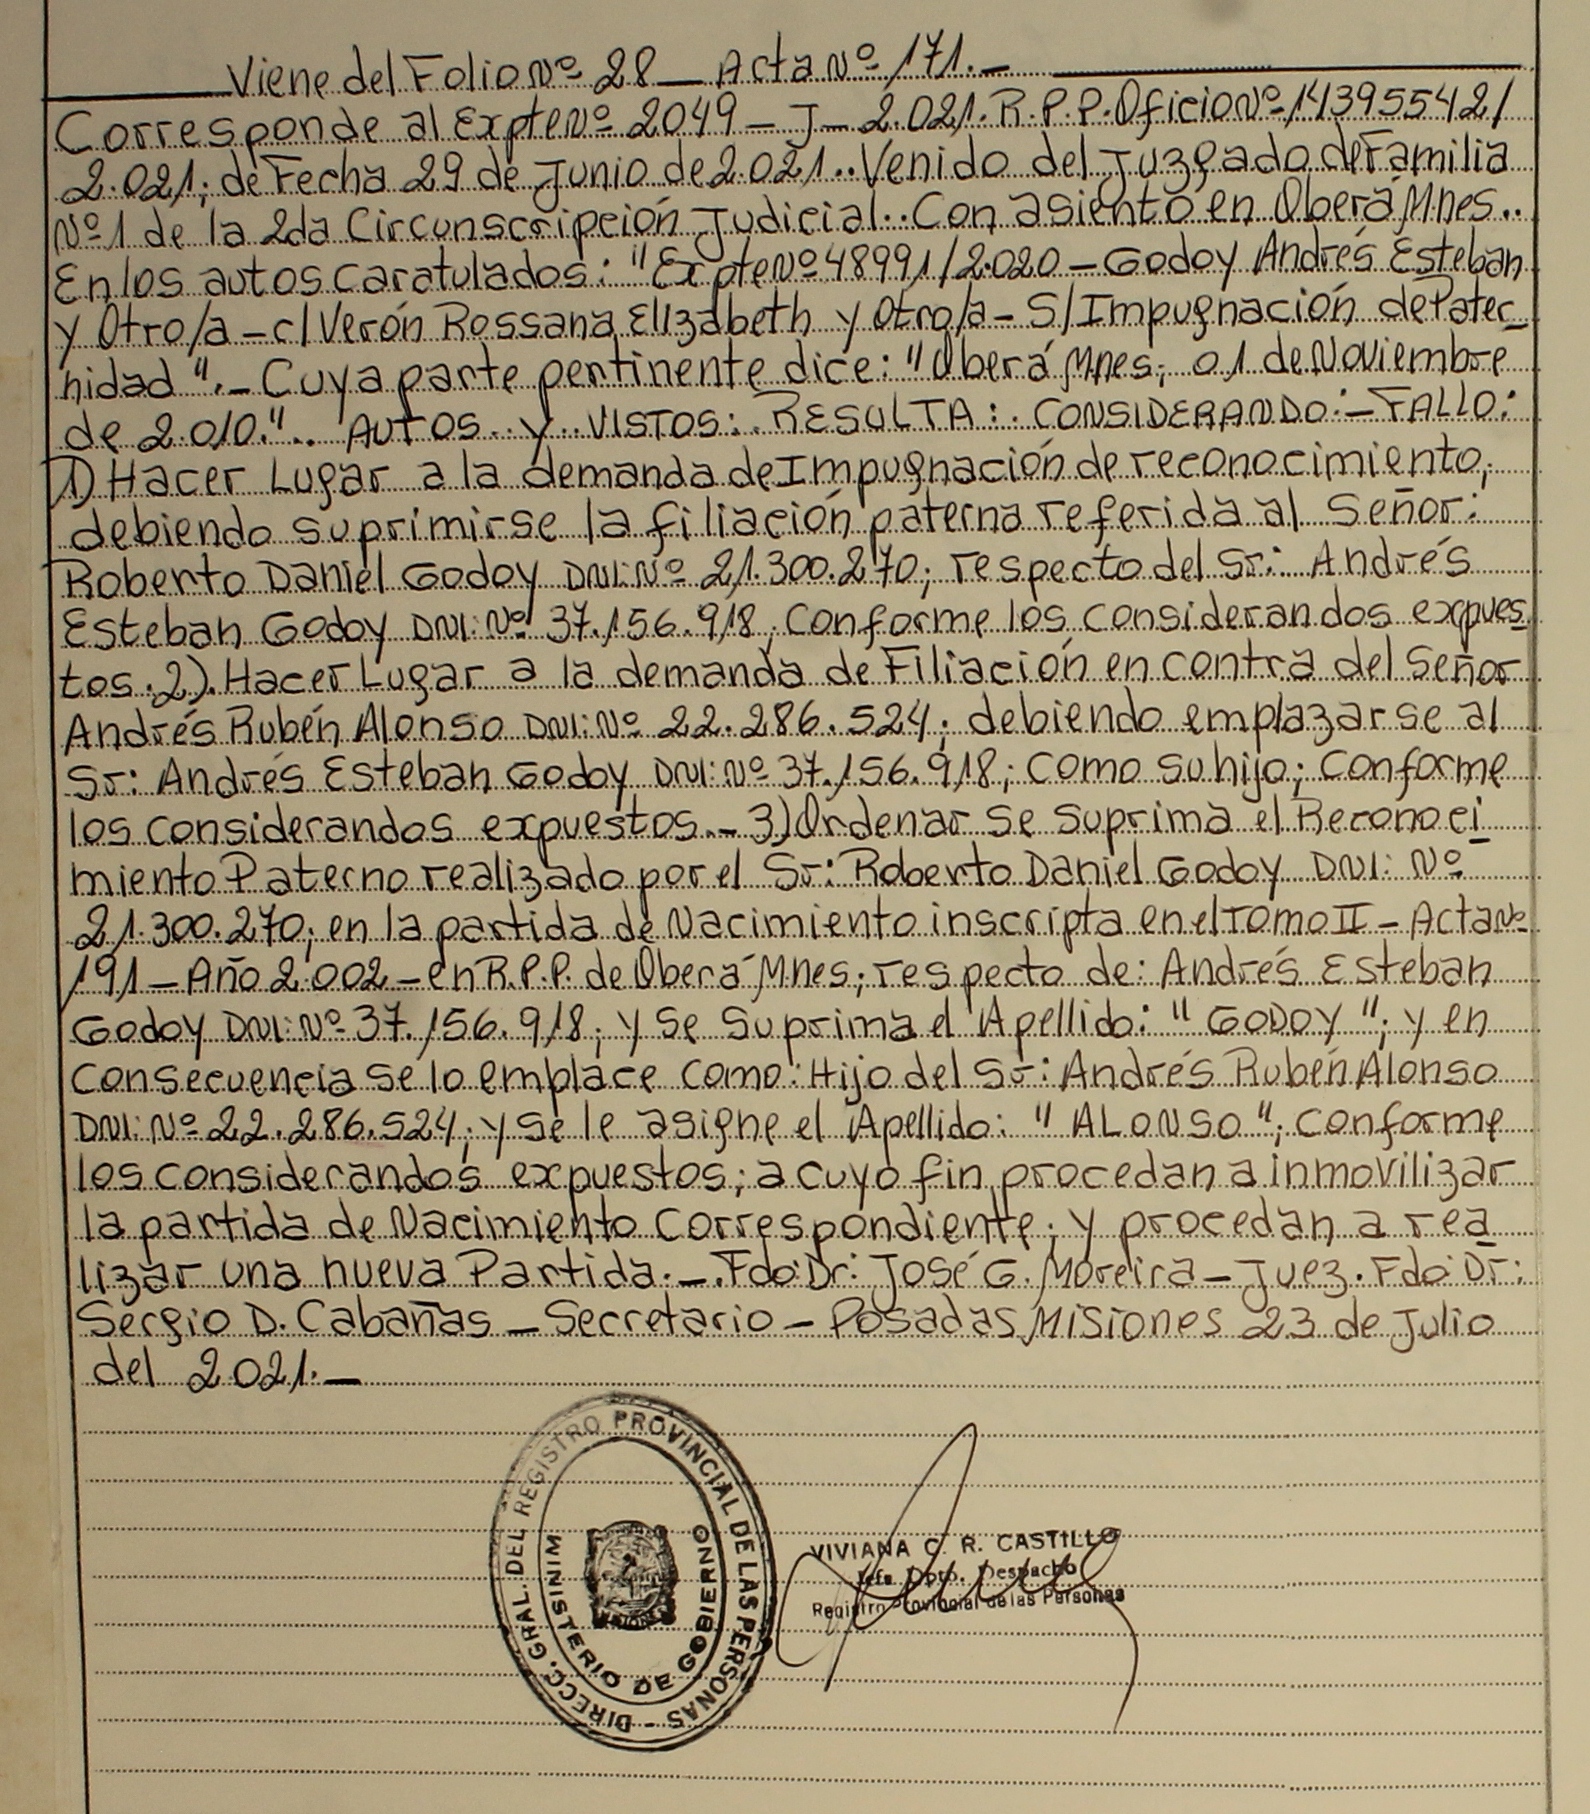 Viene del Folio Nº 28 — Acta Nº 171.—
Corresponde al Expte Nº 2049 – J – 2.021. R.P.P. Oficio Nº 14395542/
2.021; de Fecha 29 de Junio de 2.021.. Venido del Juzgado de Familia
Nº 1 de la 2da Circunscripción Judicial.. Con asiento en Oberá Mnes..
En los autos caratulados: "Expte Nº 48991/2.020 – Godoy Andrés Esteban
y Otro/a – c/ Verón Rossana Elizabeth y Otro/a – S/ Impugnación de Pater_
nidad". – Cuya parte pertinente dice: "Oberá Mnes; 01 de Noviembre
de 2.010.".. AUTOS.. y.. VISTOS:. RESULTA:. CONSIDERANDO: – FALLO:
1) Hacer Lugar a la demanda de Impugnación de reconocimiento;
debiendo suprimirse la filiación paterna referida al Señor:
Roberto Daniel Godoy DNI: Nº 21.300.270; respecto del Sr: Andrés
Esteban Godoy DNI: Nº 37.156.918; Conforme los Considerandos expues_
tos. 2). Hacer Lugar a la demanda de Filiación en contra del Señor
Andrés Rubén Alonso DNI: Nº 22.286.524; debiendo emplazarse al
Sr: Andrés Esteban Godoy DNI: Nº 37.156.918; Como su hijo; Conforme
los Considerandos expuestos.. – 3) Ordenar se Suprima el Reconoci_
miento Paterno realizado por el Sr: Roberto Daniel Godoy DNI: Nº
21.300.270; en la partida de Nacimiento inscripta en el Tomo II – Acta Nº
191 – Año 2.002 – en R.P.P. de Oberá Mnes; respecto de: Andrés Esteban
Godoy DNI: Nº 37.156.918; y se Suprima el Apellido: "GODOY"; y en
Consecuencia se lo emplace Como: Hijo del Sr: Andrés Rubén Alonso
DNI: Nº 22.286.524; y se le asigne el Apellido: "ALONSO"; Conforme
los Considerandos expuestos; a cuyo fin procedan a inmovilizar
la partida de Nacimiento Correspondiente; y procedan a rea_
lizar una nueva Partida. –. Fdo: Dr: José G. Moreira – Juez. Fdo: Dr:
Sergio D. Cabañas – Secretario – Posadas Misiones 23 de Julio
del 2.021. –
DIRECC. GRAL. DEL REGISTRO PROVINCIAL DE LAS PERSONAS –
MINISTERIO DE GOBIERNO
VIVIANA C. R. CASTILLO
Jefa Dpto. Despacho
Registro Provincial de las Personas